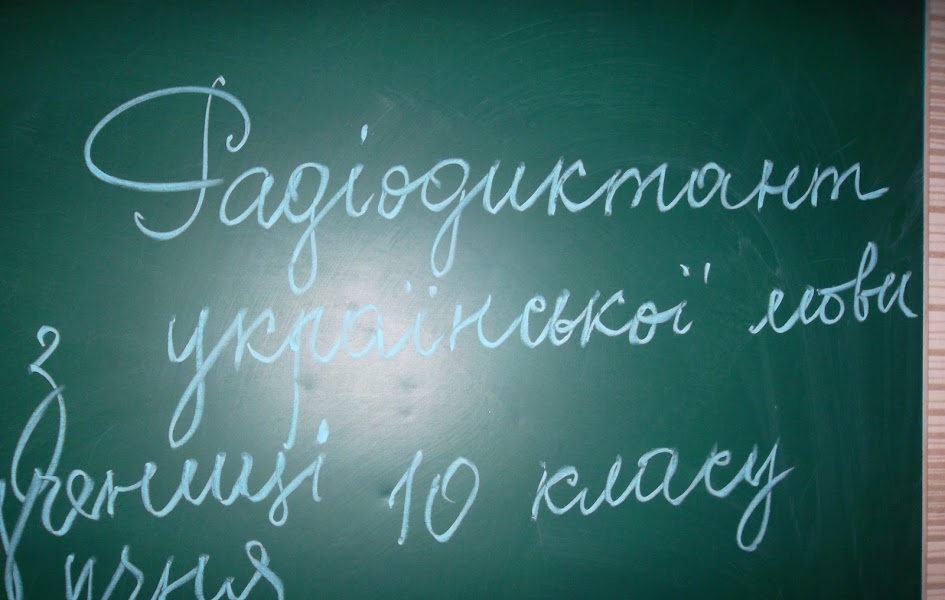 Радіодиктант
з української мови
Учениці 10 класу
учня